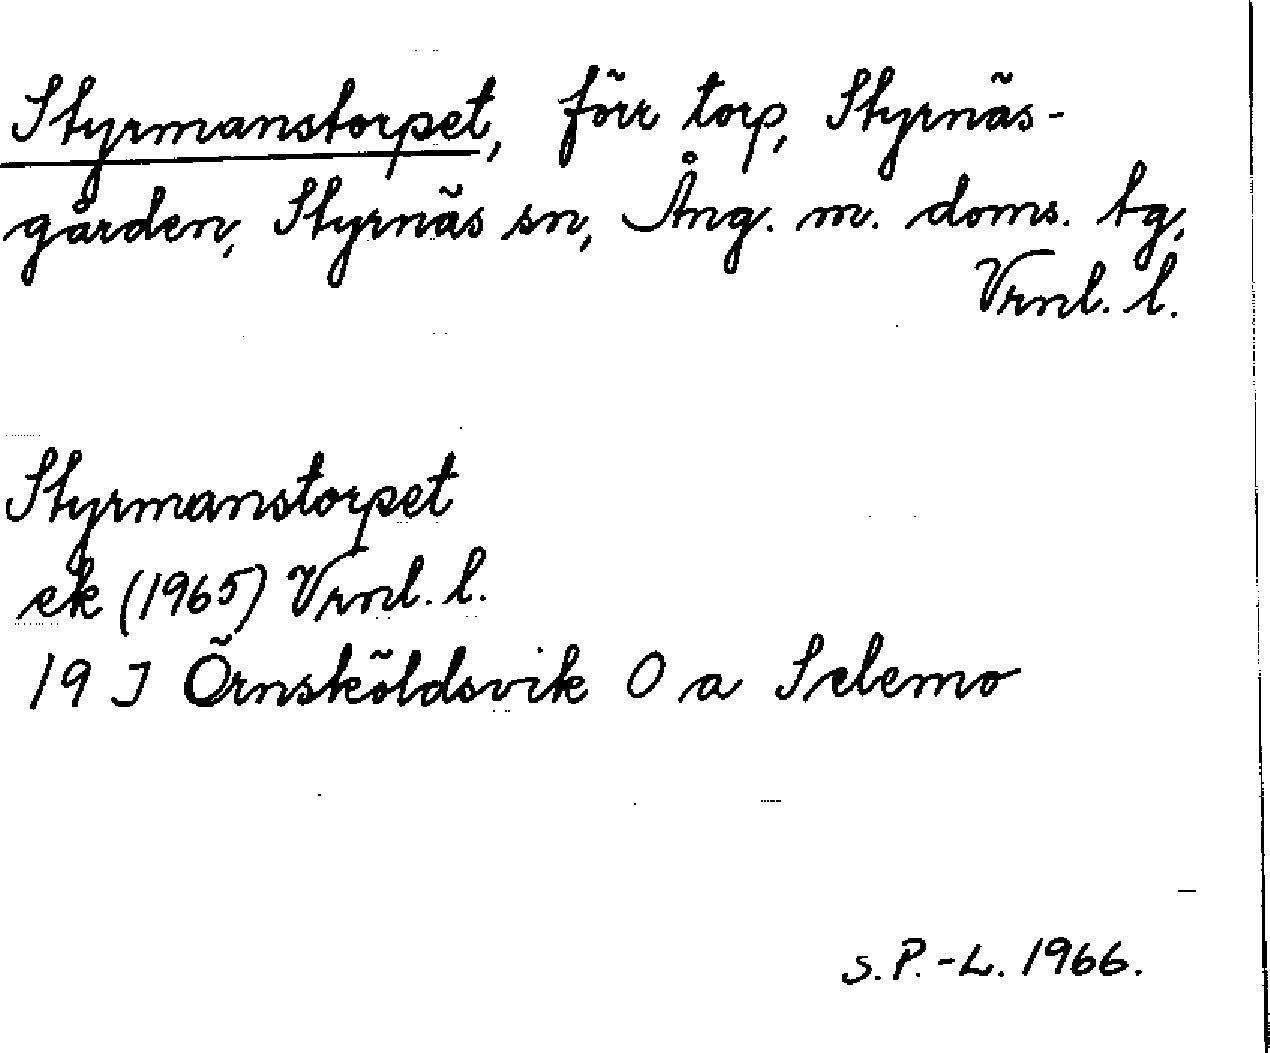 Styrmanstorpet, förr torp, Styrnäs-
gården, Styrnäs sn, Ång. m. doms. tg,
Vrnl. l.
Styrmanstorpet
ek (1965) Vrnl. l.
19 J Örnsköldsvik O a Selemo
S. P.-L. 1966.